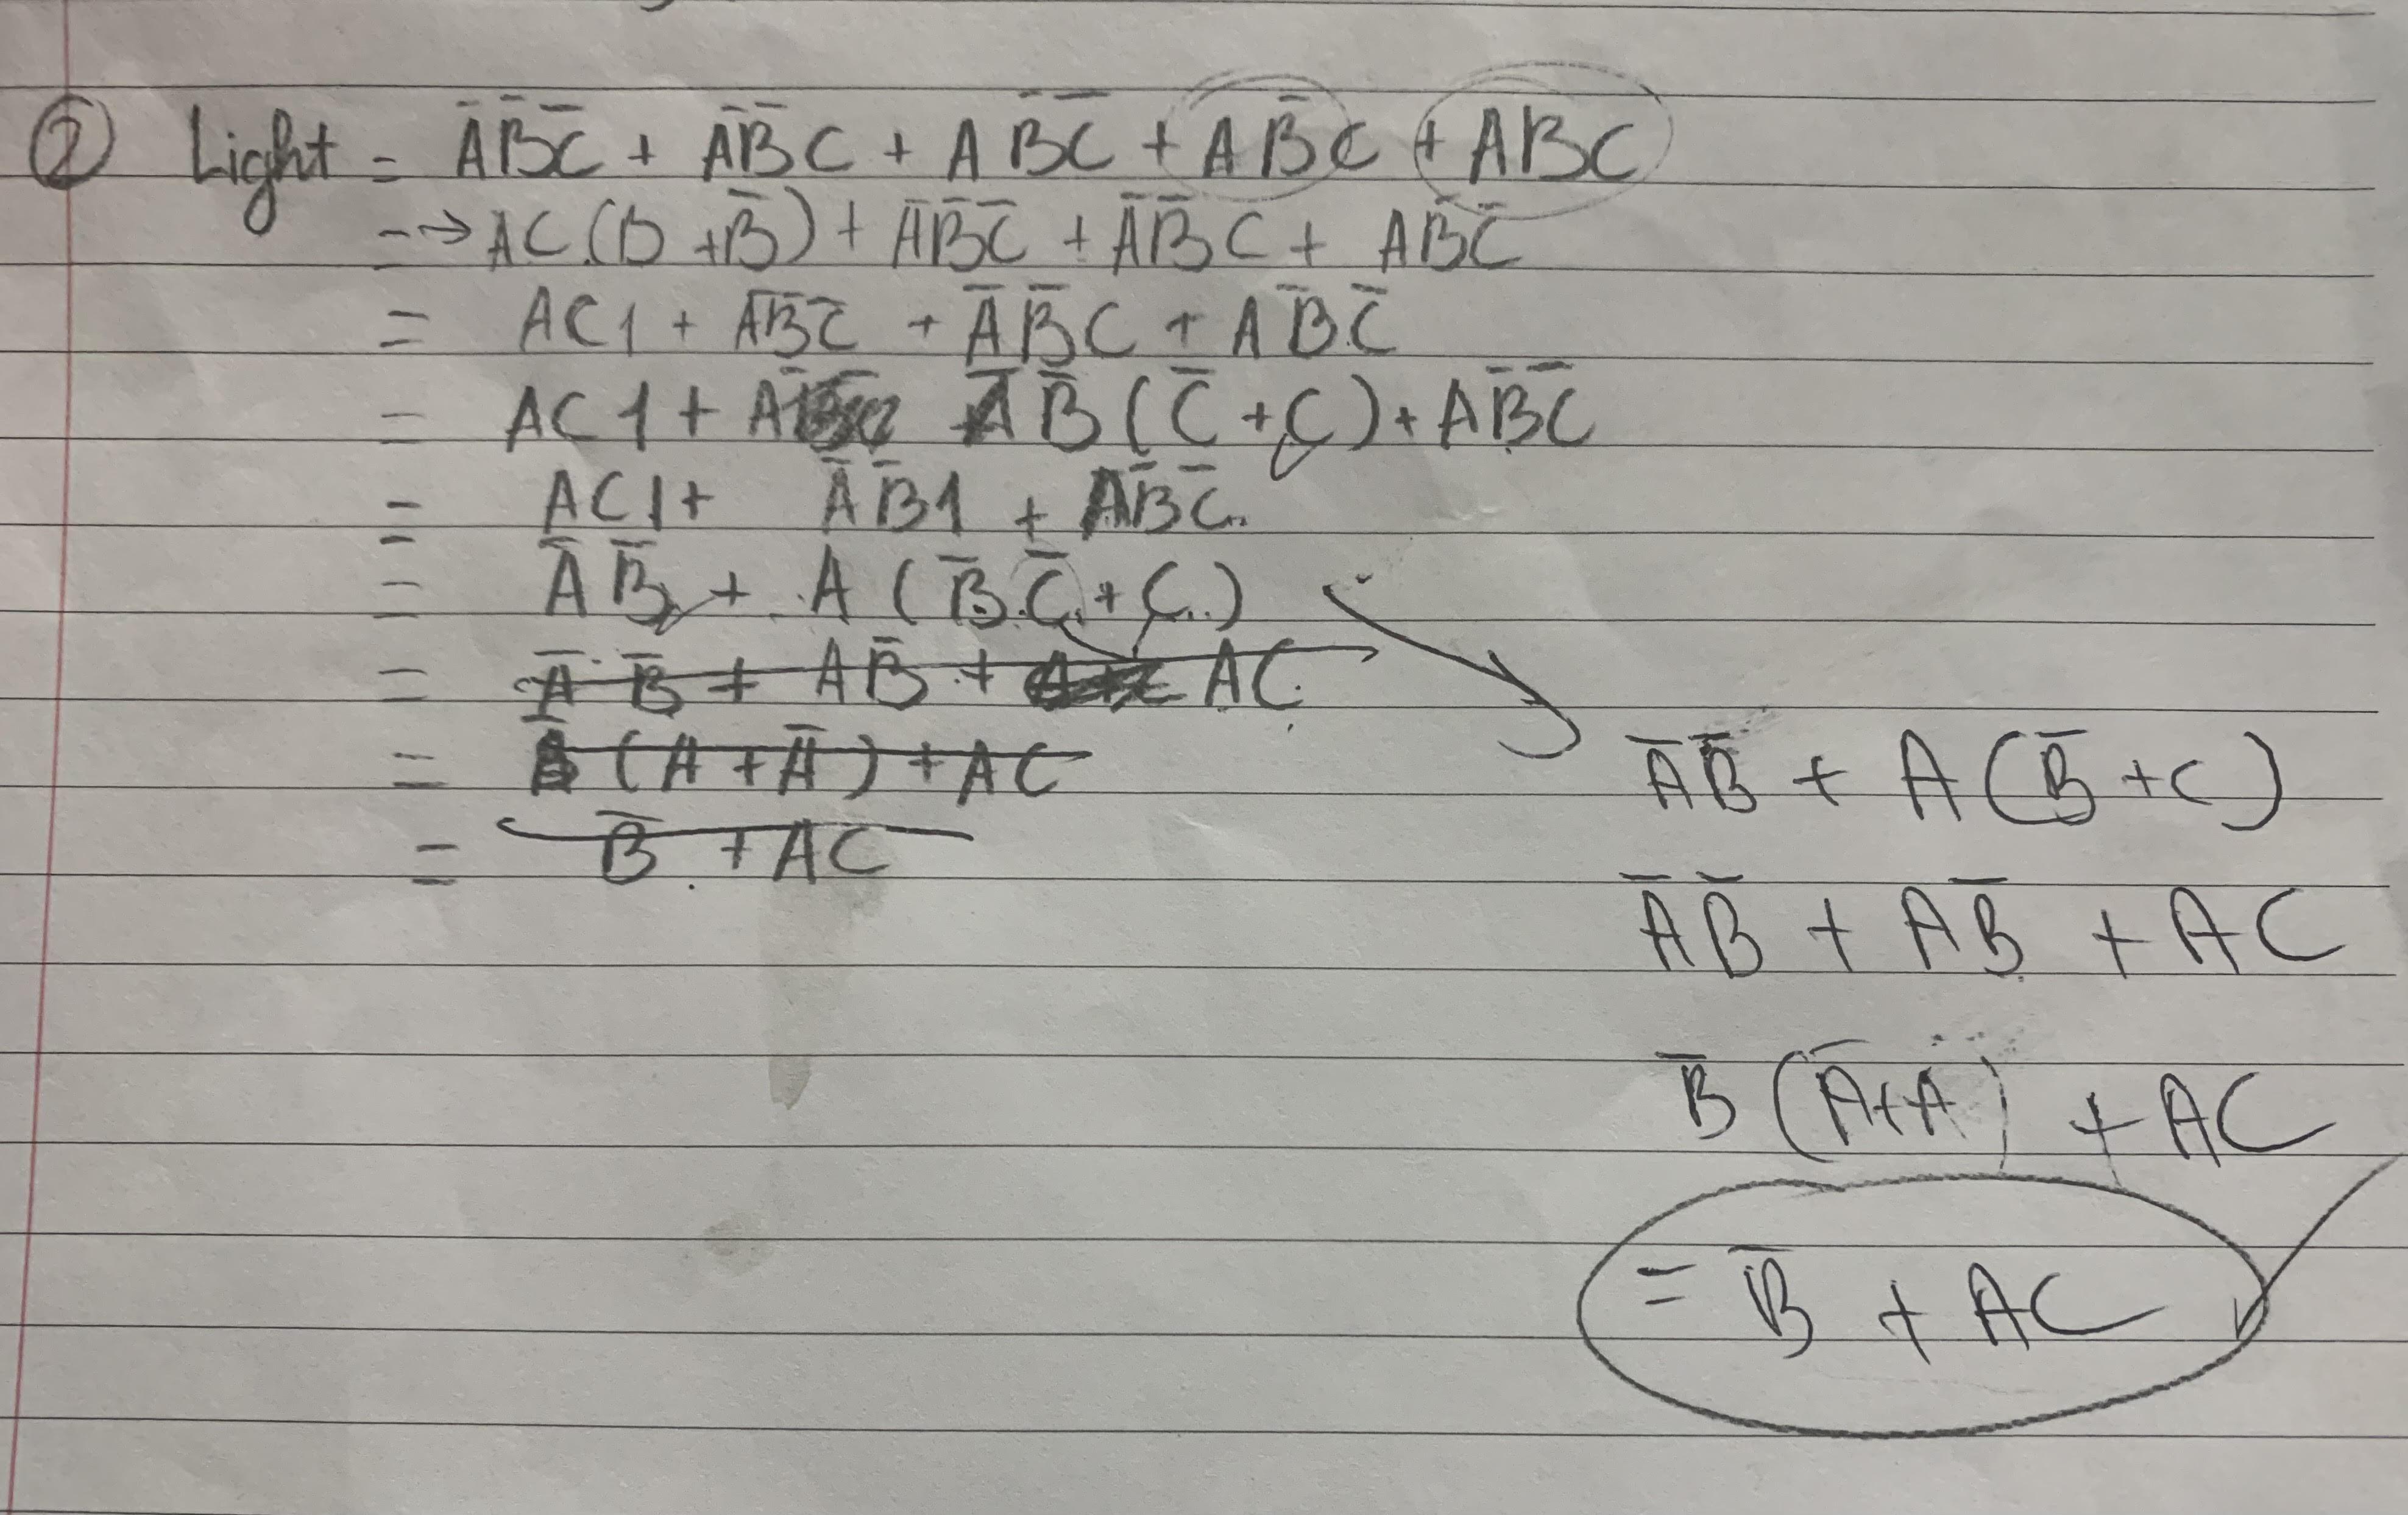 ② Light = A̅B̅C̅ + A̅B̅C + AB̅C̅ + AB̅C + ABC
= → AC.(B + B̅) + A̅B̅C̅ + A̅B̅C + AB̅C̅
= AC1 + A̅B̅C̅ + A̅B̅C + AB̅C̅
= AC1 + A̅B̅(C̅ + C) + AB̅C̅
= AC1 + A̅B̅1 + AB̅C̅
= A̅B̅ + A(B̅.C̅ + C)
= A̅B̅ + AB̅ + AC
= B̅(A + A̅) + AC
= B̅ + AC
A̅B̅ + A(B̅ + C)
A̅B̅ + AB̅ + AC
B̅(A̅+A) + AC
= B̅ + AC